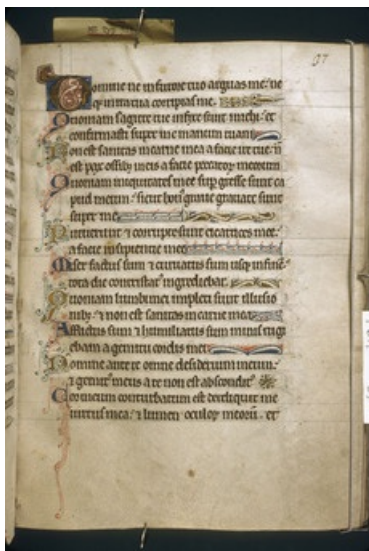 97
Domine ne in furore tuo arguas me: ne
q; in ira tua corripias me.
Quoniam sagitte tue infixe sunt michi: et
confirmasti super me manum tuam
Non est sanitas in carne mea a facie ire tue: n
est pax ossib; meis a facie peccator meorum
Quoniam iniquitates mee sup gresse sunt ca
put meum: sicut hon graue grauate sunt
super me
Putruerunt et corrupte sunt cicatrices mee:
a facie insipientie mee
Miser factus sum et curuatus sum usq; in finem:
tota die contristat ingrediebar.
Quoniam lumbi mei impleti sunt illusio
nib; et non est sanitas in carne mea
Afflictus sum et humiliatus sum nimis rugi
ebam a gemitu cordis mei
Domine ante te omne desiderium meum:
et gemit meus a te non est abscondit
Cor meum conturbatum est dereliquit me
uirtus mea: et lumen oculor meorum et